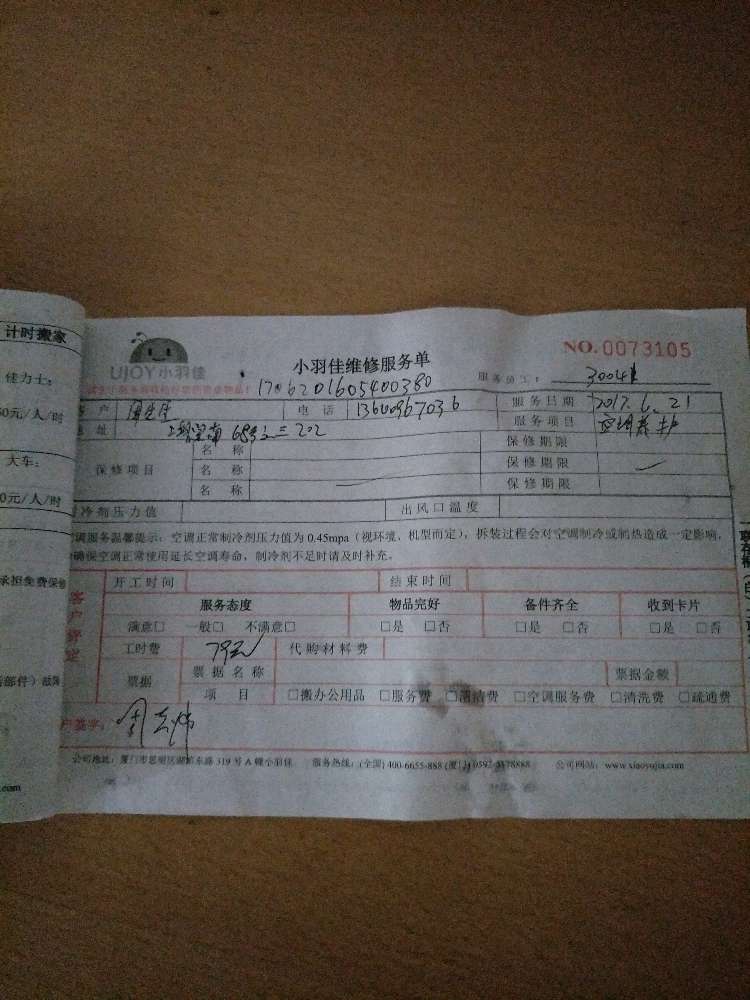 计时搬家
佳力士:
50元/人/时
大车:
0元/人/时
承担免费保修
部件)故障
.com
UJOY小羽佳
小羽佳维修服务单
NO.0073105
服务员工:
1706201605400380
客户 周先生 电话 13600967036 服务日期 2017.6.21
地址 68号之三202 服务项目 空调养护
保修项目
名称 保修期限
名称 保修期限
名称 保修期限
制冷剂压力值 出风口温度
调服务温馨提示:空调正常制冷剂压力值为0.45mpa(视环境、机型而定),拆装过程会对空调制冷或制热造成一定影响,
确保空调正常使用延长空调寿命,制冷剂不足时请及时补充。
客户评定
开工时间 结束时间
服务态度 物品完好 备件齐全 收到卡片
满意□ 一般□ 不满意□ □是 □否 □是 □否 □是 □否
工时费 79元 代购材料费
票据 票据名称 票据金额
项目 □搬办公用品 □服务费 □清洁费 □空调服务费 □清洗费 □疏通费
户签字:
公司地址:厦门市思明区湖滨东路319号A幢小羽佳 服务热线:(全国)400-6655-888(厦门)0592-5178888 公司网站:www.xiaoyujia.com